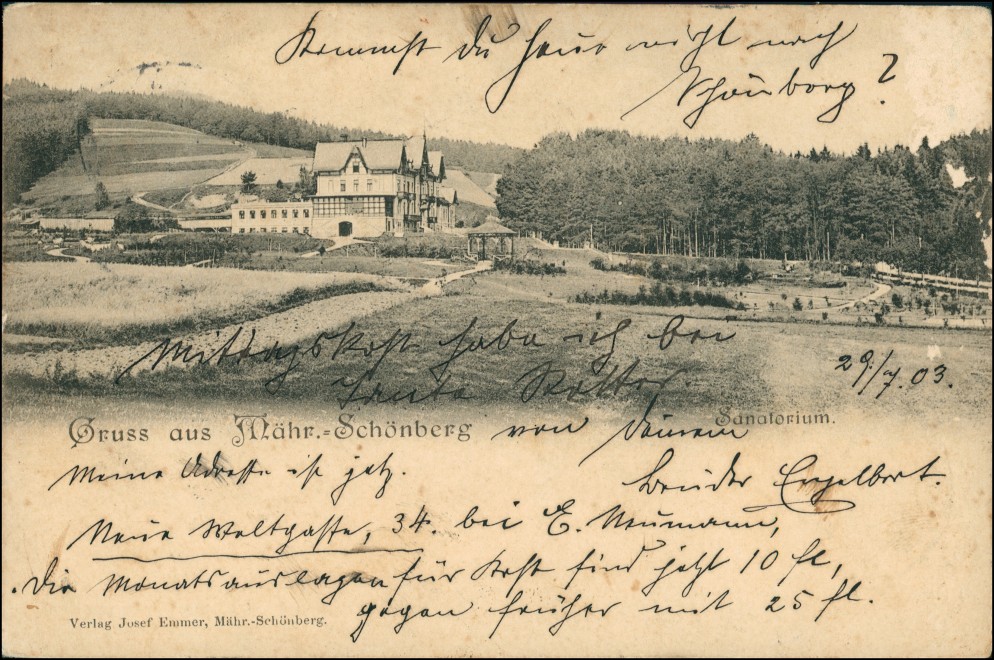 Kommst du heuer nicht nach
Schönberg?
Mittagskost habe ich bei
Tante
29./7. 03.
Gruss aus Mähr.-Schönberg
Sanatorium.
von deinem
Bruder Engelbert.
Meine Adresse ist jetz.
Neue Weltgasse, 34. bei E. Neumann,
Die Monatsauslagen für Kost sind jetzt 10 fl,
gegen früher mit 25 fl.
Verlag Josef Emmer, Mähr.-Schönberg.